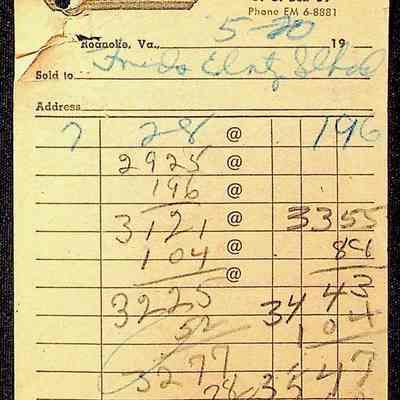 Phone EM 6-8881
Roanoke, Va., 5-20 19
Sold to
Address
7 28 @ 196
2925 @
196 @
3121 @ 3355
104 @ 88
3225 @ 3443
52 104
3277 3547
28